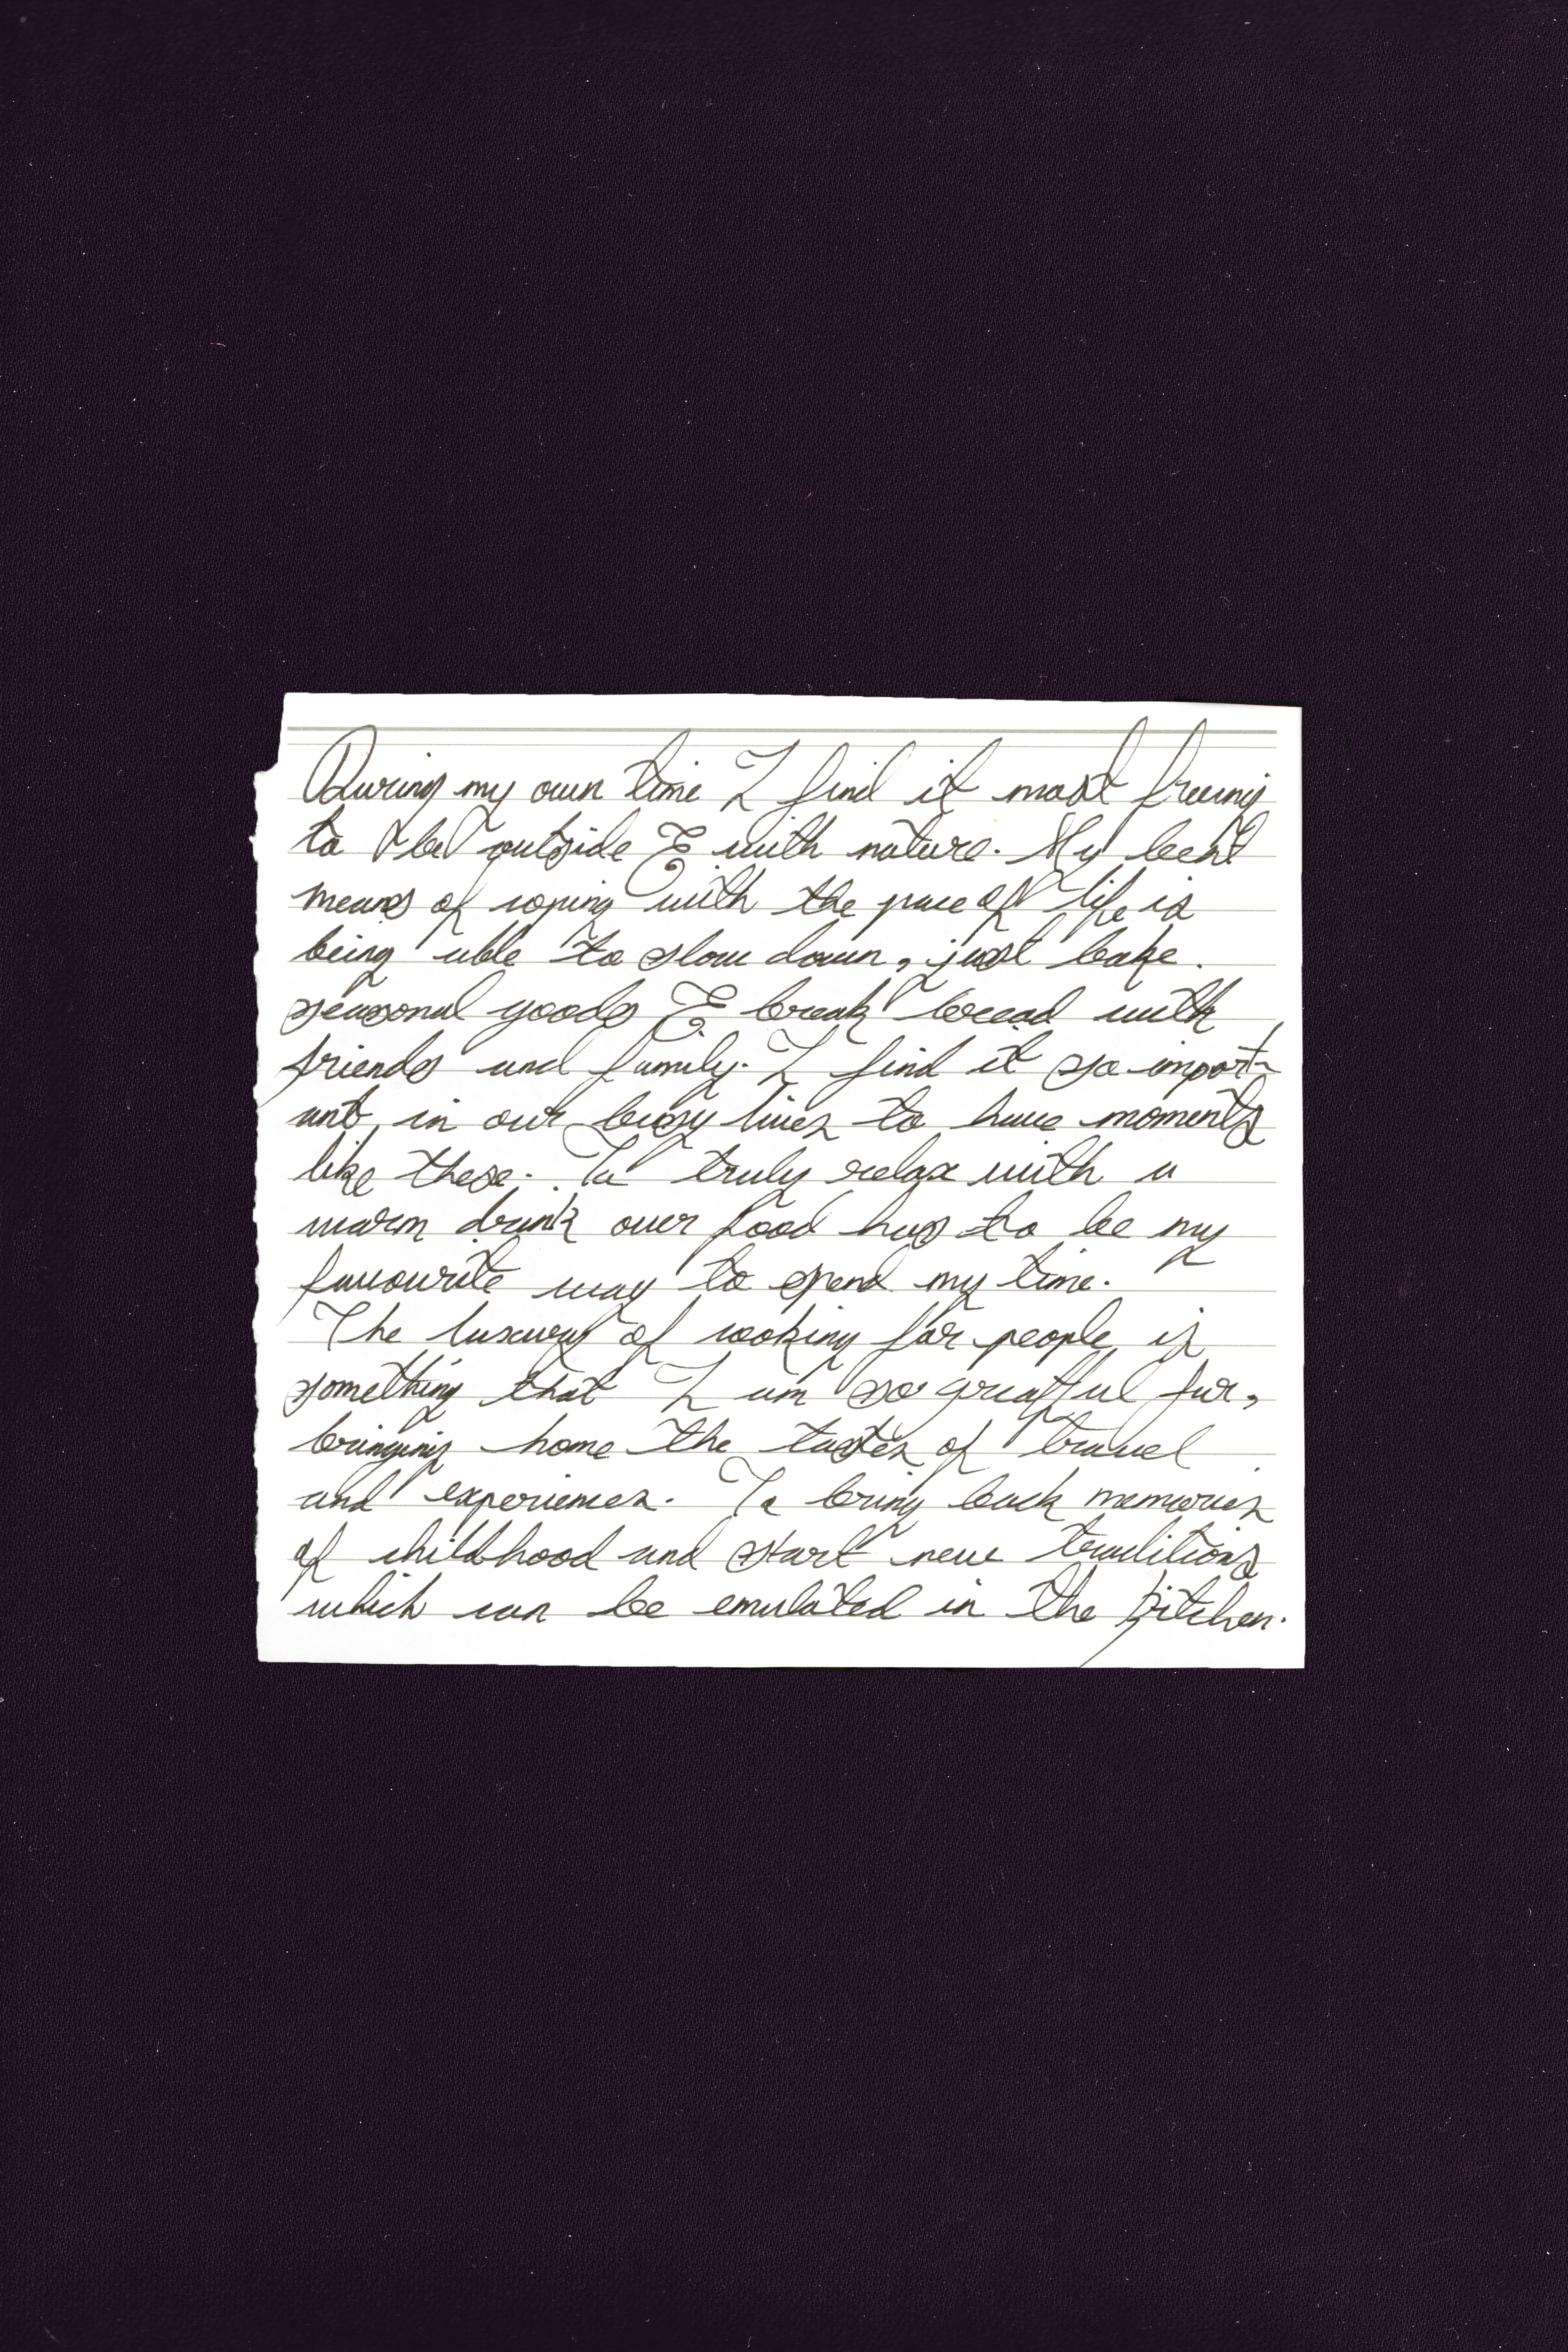 During my own time I find it most freeing
to be outside & with nature. My best
means of coping with the pace of life is
being able to slow down, just bake
seasonal goods & break bread with
friends and family. I find it so import-
ant in our busy lives to have moments
like these. To truly relax with a
warm drink over food has to be my
favourite way to spend my time.
The luxury of cooking for people is
something that I am so greatful for,
bringing home the tastes of travel
and experiences. To bring back memories
of childhood and start new traditions
which can be emulated in the kitchen.